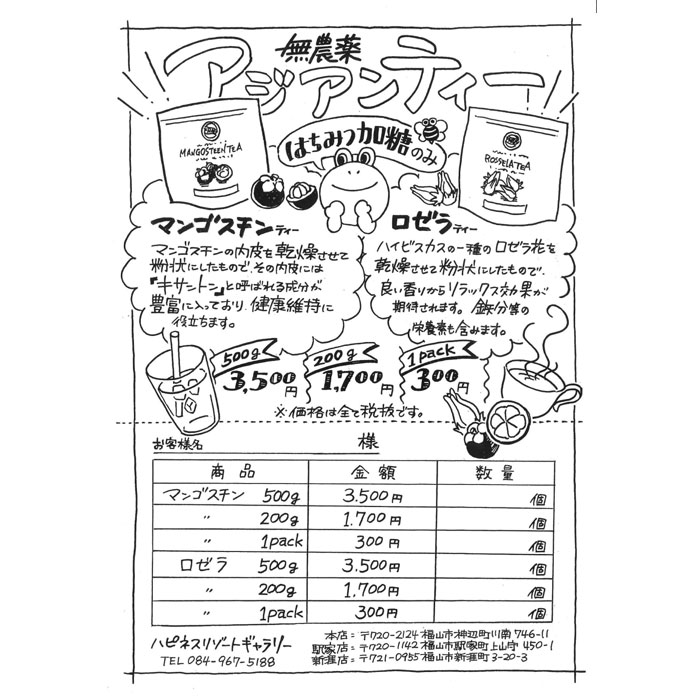 無農薬
アジアンティー
はちみつ加糖のみ
MANGOSTEEN TEA
ROSSELA TEA
マンゴスチンティー
マンゴスチンの内皮を乾燥させて
粉状にしたもので、その内皮には
『キサントン』と呼ばれる成分が
豊富に入っており、健康維持に
役立ちます。
ロゼラティー
ハイビスカスの一種のロゼラ花を
乾燥させて粉状にしたもので、
良い香りからリラックス効果が
期待されます。鉄分等の
栄養素も含みます。
500g 200g 1pack
3,500円 1,700円 300円
※価格は全て税抜です。
お客様名 様
商品 金額 数量
マンゴスチン 500g 3.500円 個
〃 200g 1.700円 個
〃 1pack 300円 個
ロゼラ 500g 3.500円 個
〃 200g 1,700円 個
〃 1pack 300円 個
ハピネスリゾートギャラリー
TEL 084-967-5188
本店：〒720-2124 福山市神辺町川南 746-11
駅家店：〒720-1142 福山市駅家町上山守 450-1
新涯店：〒721-0955 福山市新涯町 3-20-3